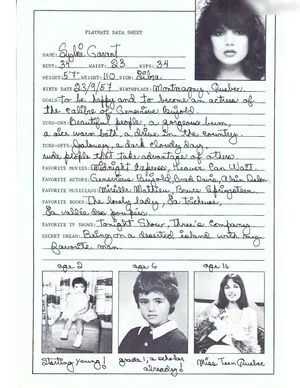 PLAYMATE DATA SHEET
NAME: Sylvie Garant
BUST: 34" WAIST: 23 HIPS: 34
HEIGHT: 5'7" WEIGHT: 110 SIGN: Libra
BIRTH DATE: 23/9/57 BIRTHPLACE: Montmagny, Quebec
GOALS: to be happy and to become an actress of
the calibre of Genevieve Bujold.
TURN-ONS: Beautiful people, a gorgeous bum,
a nice warm bath, a drive in the country.
TURN-OFFS: Jealousy, a dark cloudy day,
rude people that take advantage of others.
FAVORITE MOVIES: Midnight Express, Heaven Can Wait.
FAVORITE ACTORS: Genevieve Bujold, Brad Davis, Alain Delon
FAVORITE MUSICIANS: Mireille Mathieu, Bruce Springsteen
FAVORITE BOOKS: The lonely lady, La Tricheuse,
La vallée des poupées.
FAVORITE TV SHOWS: Tonight Show, Three's Company
SECRET DREAM: Being on a deserted island with my
favorite man.
age 2 age 6 age 16
Starting young! grade 1, a scholar already! Miss Teen Quebec